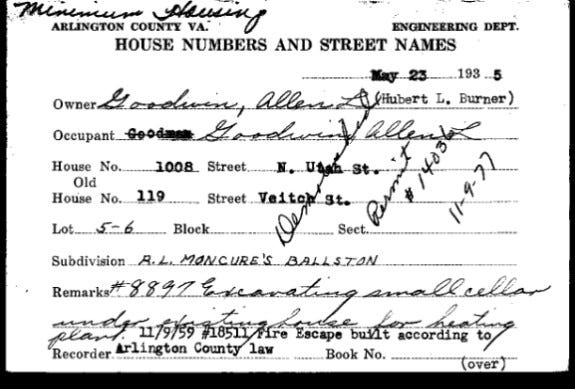 Minimum Housing
ARLINGTON COUNTY VA. ENGINEERING DEPT.
HOUSE NUMBERS AND STREET NAMES
May 23 1935
Owner Goodwin, Allen L (Hubert L. Burner)
Occupant Goodman Goodwin Allen L
House No. 1008 Street N. Utah St.
Old
House No. 119 Street Veitch St.
Lot 5-6 Block Sect.
Permit
11-9-77
Subdivision R.L. MONCURE'S BALLSTON
Remarks #8897 Excavating small cellar
under existing house for heating
plant. 11/9/59 #18511 Fire Escape built according to
Recorder Arlington County law Book No.
(over)